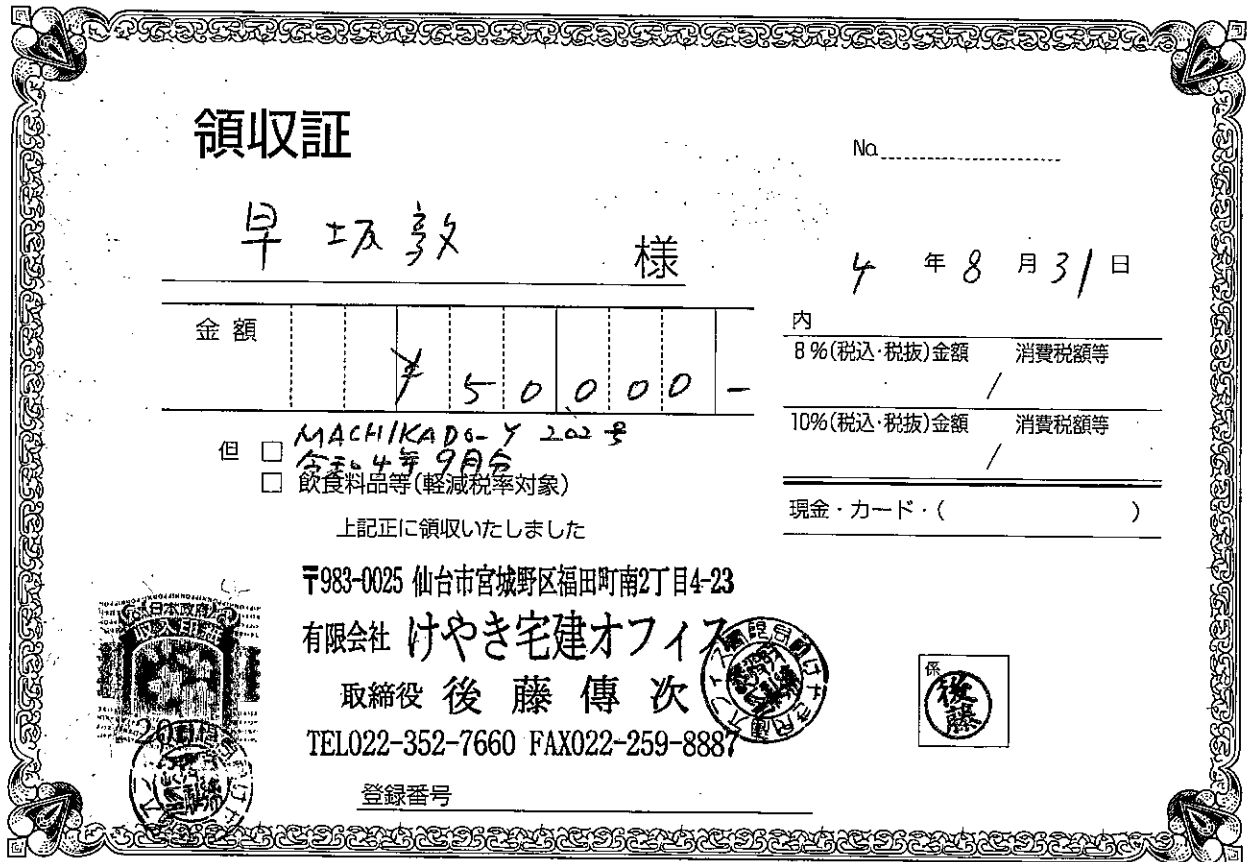 領収証
No.
早坂敦 様
4 年 8 月 31 日
金額 ¥50000-
内
8%(税込・税抜)金額 消費税額等
/
10%(税込・税抜)金額 消費税額等
/
現金・カード・( )
但 □ MACHIKADO-Y 202号
令和4年9月分
□ 飲食料品等(軽減税率対象)
上記正に領収いたしました
〒983-0025 仙台市宮城野区福田町南2丁目4-23
有限会社 けやき宅建オフィス
取締役 後藤傳次
TEL022-352-7660 FAX022-259-8887
登録番号
日本政府
収入印紙
200円
係
後藤